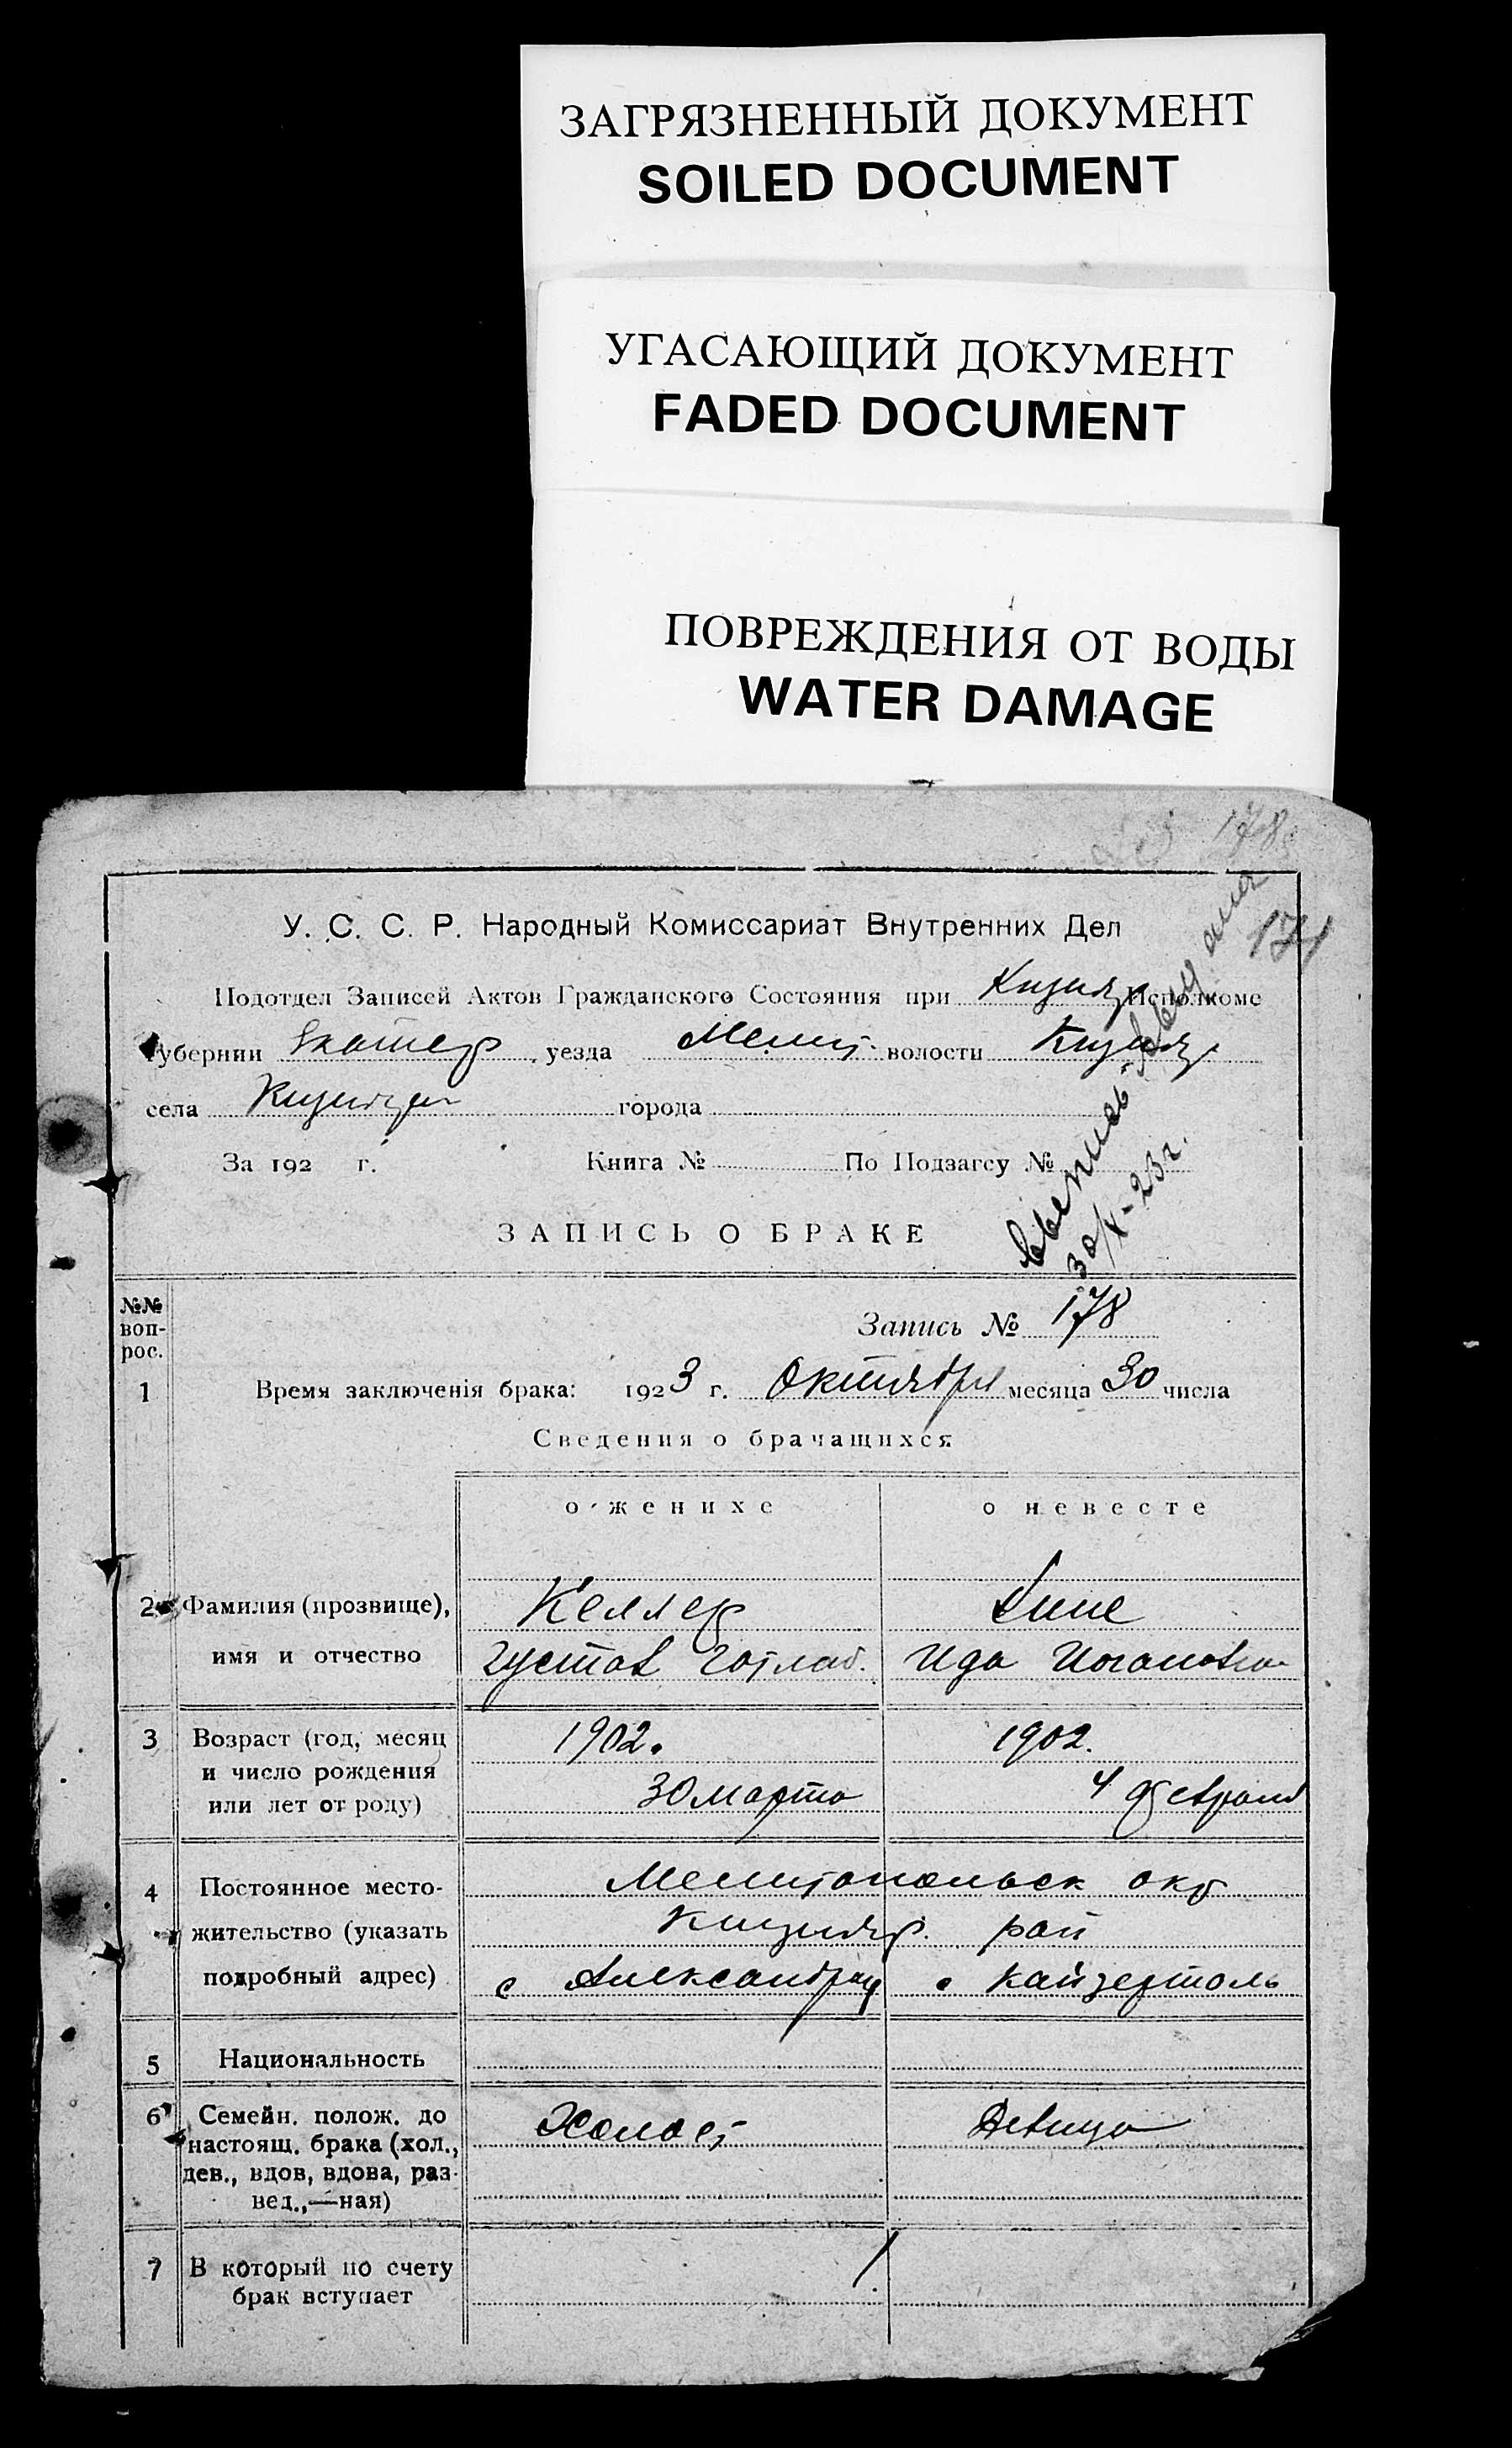 ЗАГРЯЗНЕННЫЙ ДОКУМЕНТ
SOILED DOCUMENT
УГАСАЮЩИЙ ДОКУМЕНТ
FADED DOCUMENT
ПОВРЕЖДЕНИЯ ОТ ВОДЫ
WATER DAMAGE
178
171
У. С. С. Р. Народный Комиссариат Внутренних Дел
Подотдел Записей Актов Гражданского Состояния при Кизияр Исполкоме
Губернии Екатер уезда Мелит. волости Кизияр
села Кизияр города
За 192 г. Книга № По Подзагсу №
30/X-23 г.
ЗАПИСЬ О БРАКЕ
№№ воп-рос.
Запись № 178
1 Время заключенiя брака: 1923 г. Октября месяца 30 числа
Сведения о брачащихся
о женихе о невесте
2 Фамилия (прозвище), Келлер
имя и отчество Густав Готлиб. Ида Иогановна
3 Возраст (год, месяц 1902. 1902.
и число рождения 30 марта 4 февраля
или лет от роду)
4 Постоянное место- Мелитопольск окр
жительство (указать Кизияр. рай
подробный адрес) с Александрф с Кайзерталь
5 Национальность
6 Семейн. полож. до Холост Девица
настоящ. брака (хол.,
дев., вдов, вдова, раз-
вед.,—ная)
7 В который по счету 1
брак вступает